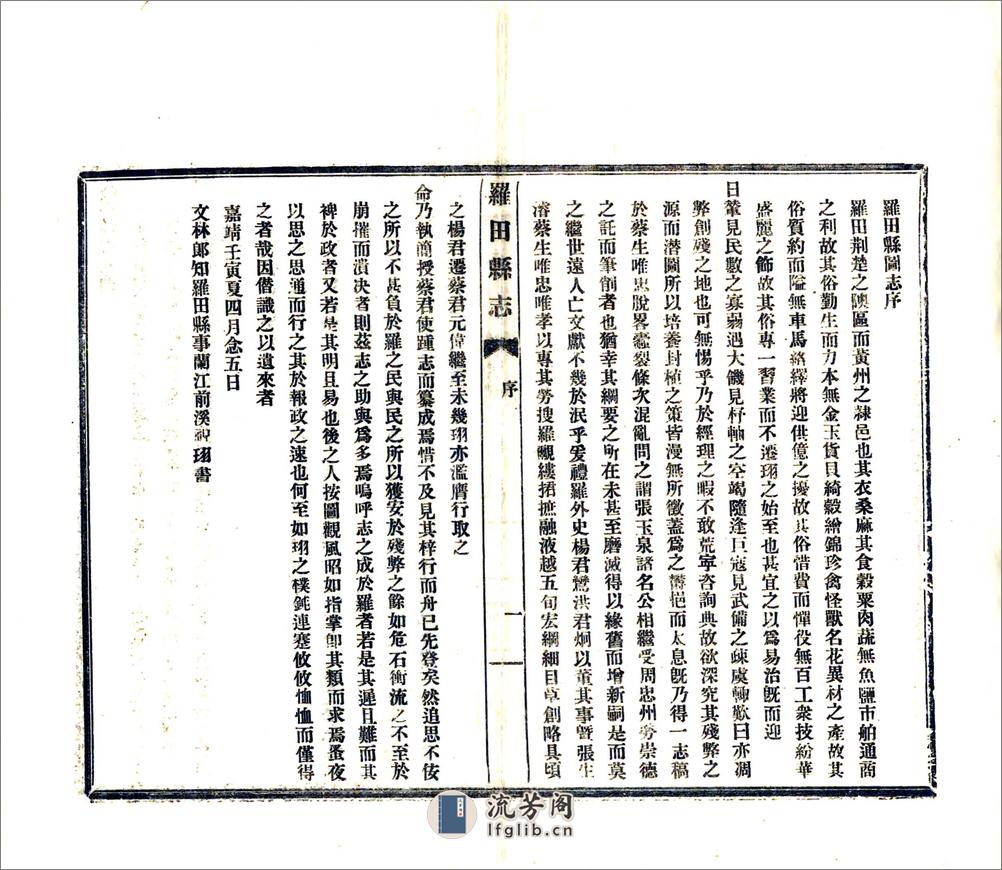 羅田縣圖志序
羅田荆楚之隩區而黃州之隷邑也其衣桑麻其食穀粟肉蔬無魚鹽市舶通商
之利故其俗勤生而力本無金玉貨貝綺縠繪錦珍禽怪獸名花異材之產故其
俗質約而隘無車馬絡繹將迎供億之擾故其俗惜費而憚役無百工衆技紛華
盛麗之飾故其俗專一習業而不遷珝之始至也甚宜之以爲易治旣而迎
日輩見民數之寡弱遇大饑見杼軸之空竭隨逢巨寇見武備之疎虞輙歎曰亦凋
弊創殘之地也可無惕乎乃於經理之暇不敢荒寧咨詢典故欲深究其殘弊之
源而潛圖所以培養封植之策皆漫無所徵蓋爲之鬱悒而太息旣乃得一志稿
於蔡生唯忠脫畧蠧裂條次混亂問之謂張玉泉諸名公相繼受周忠州勞崇德
之託而筆削者也猶幸其綱要之所在未甚至磨滅得以緣舊而增新嗣是而莫
之繼世遠人亡文獻不幾於泯乎爰禮羅外史楊君鸞洪君炯以董其事曁張生
濬蔡生唯忠唯孝以專其勞搜羅覼縷捃摭融液越五旬宏綱細目草創略具頃
羅田縣志
序
一
之楊君遷蔡君元偉繼至未幾珝亦濫膺行取之
命乃執簡授蔡君使踵志而纂成焉惜不及見其梓行而舟已先登矣然追思不佞
之所以不甚負於羅之民與民之所以獲安於殘弊之餘如危石衝流之不至於
崩摧而潰决者則茲志之助與爲多焉嗚呼志之成於羅者若是其遲且難而其
裨於政者又若是其明且易也後之人按圖觀風昭如指掌卽其類而求焉蚤夜
以思之思通而行之其於報政之速也何至如珝之樸鈍連蹇攸攸恤恤而僅得
之者哉因僭識之以遺來者
嘉靖壬寅夏四月念五日
文林郎知羅田縣事蘭江前溪祝珝書
流芳阁
lfglib.cn